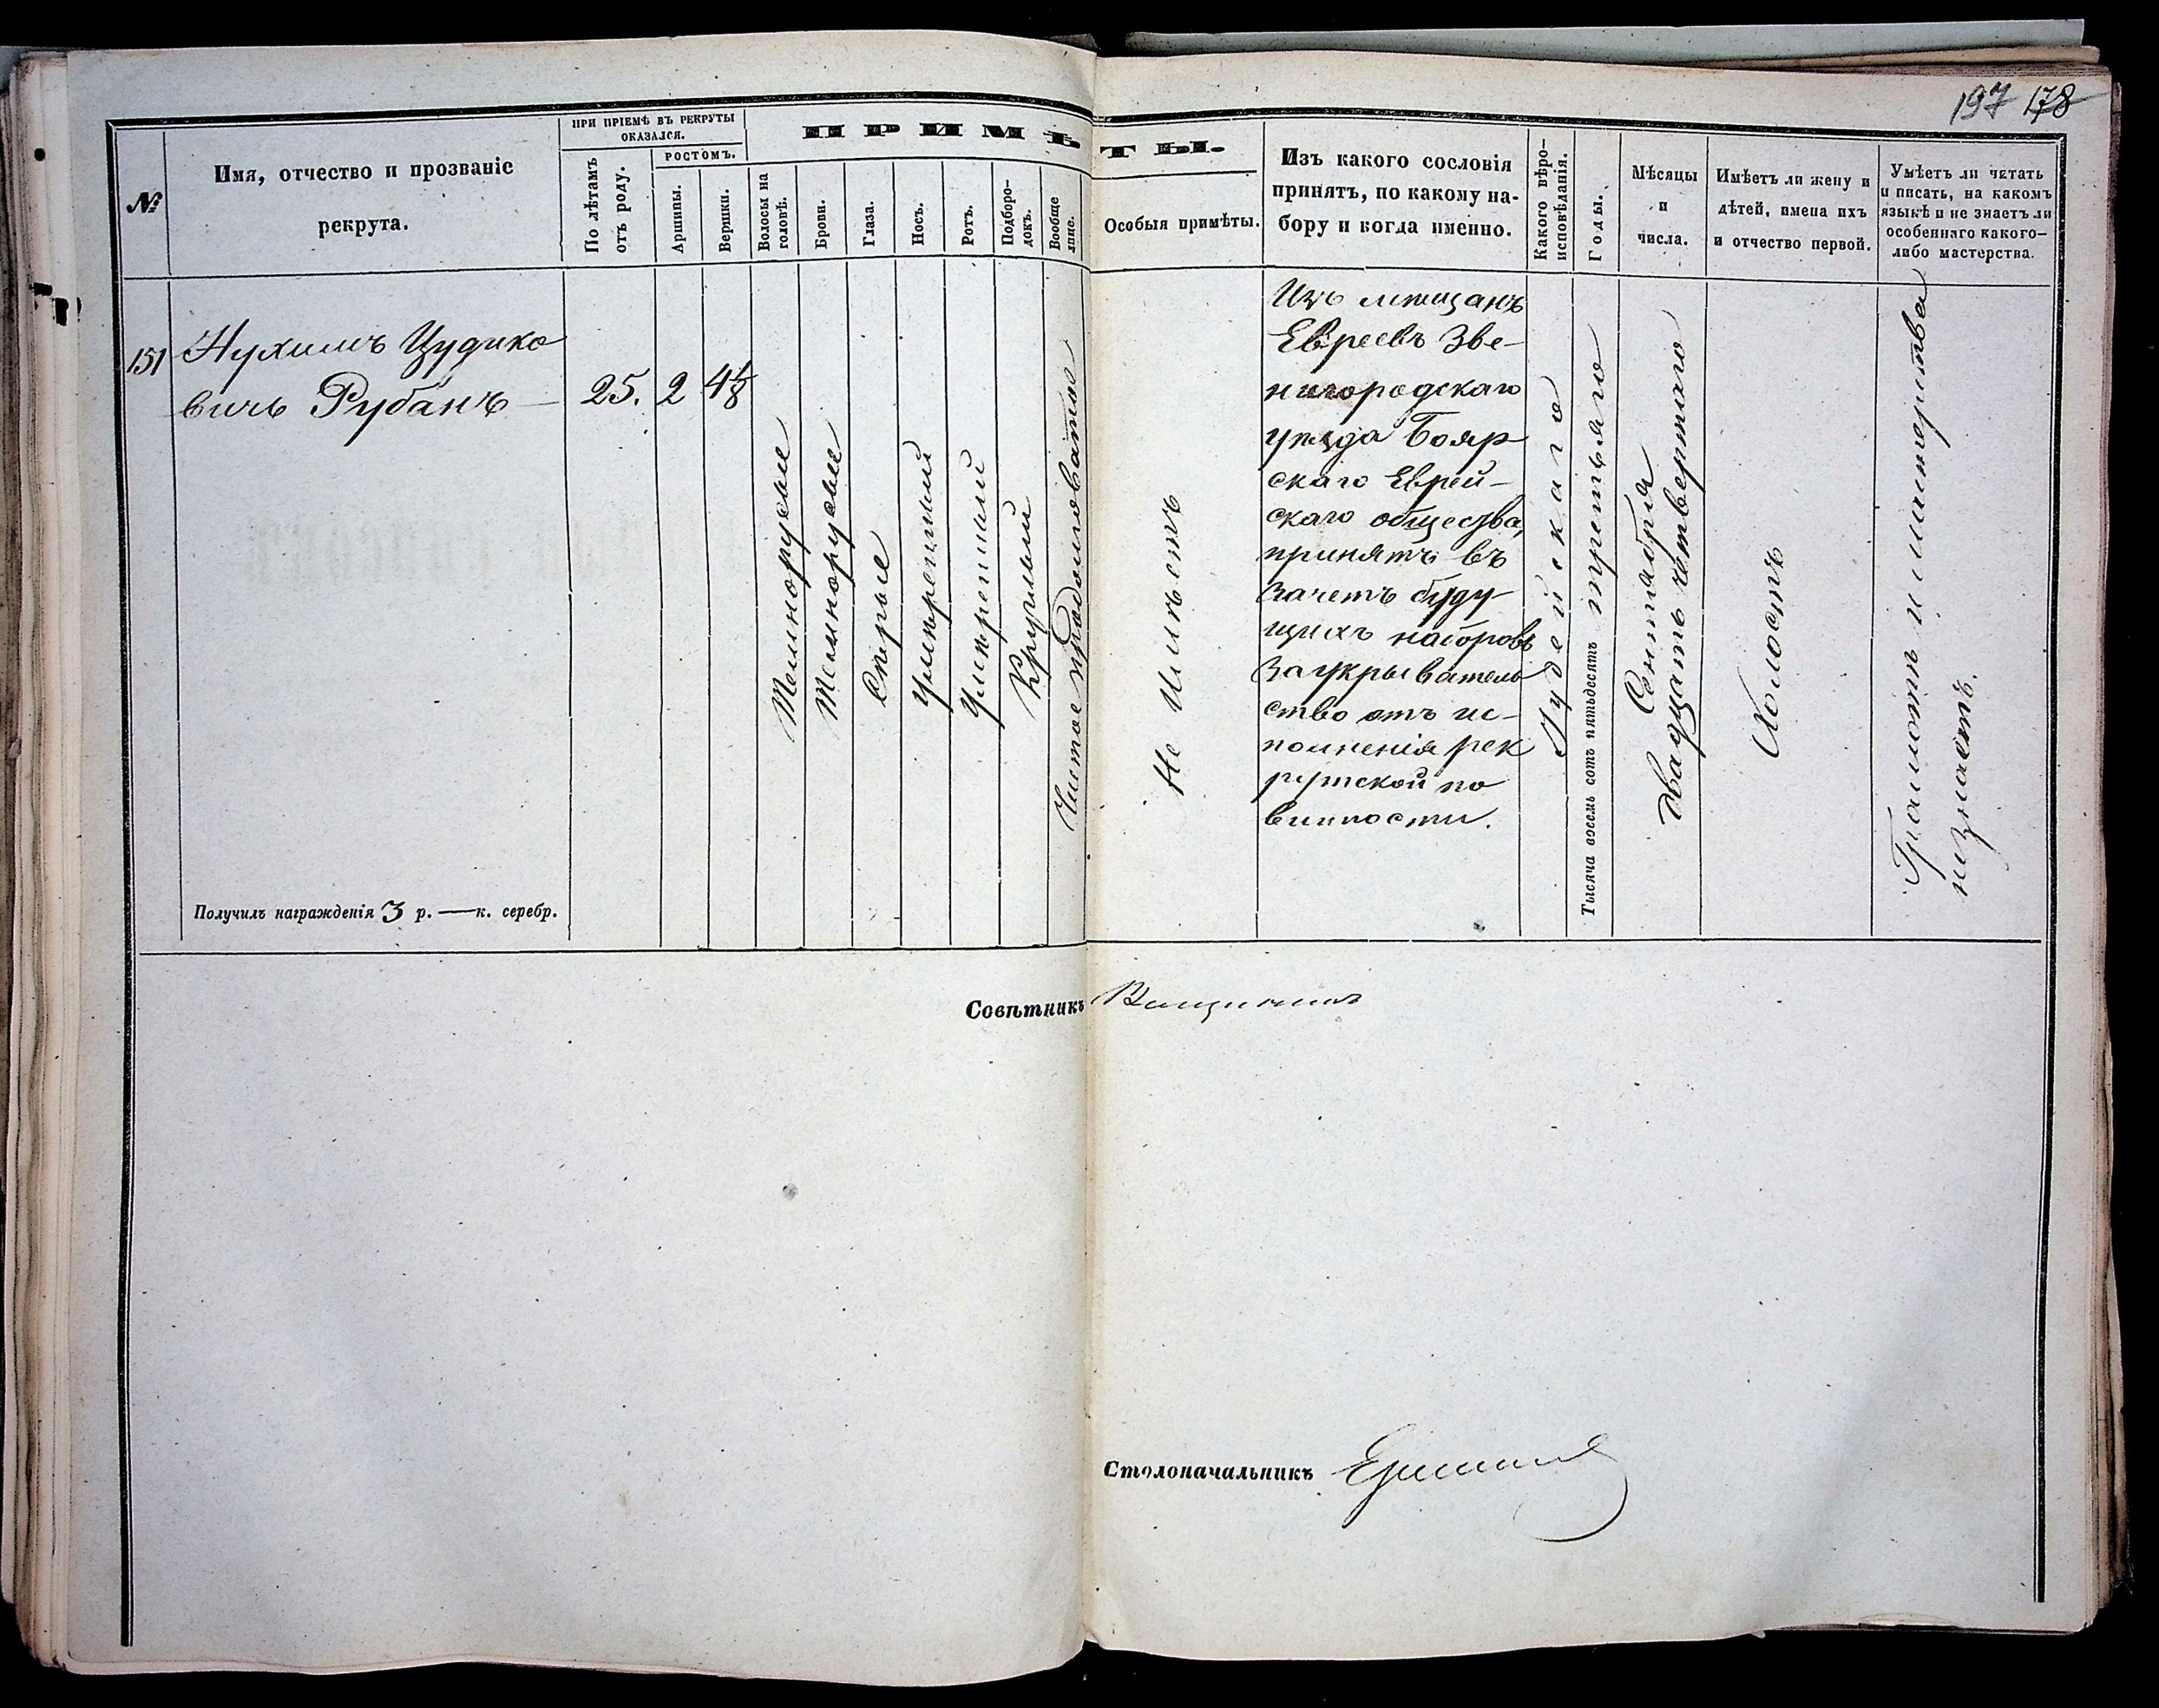 197 178
№
Имя, отчество и прозваніе
рекрута.
ПРИ ПРІЕМѢ ВЪ РЕКРУТЫ
ОКАЗАЛСЯ.
По лѣтамъ
отъ роду.
РОСТОМЪ.
Аршины.
Вершки.
ПРИМѢТЫ.
Волосы на
головѣ.
Брови.
Глаза.
Носъ.
Ротъ.
Подборо-
докъ.
Вообще
лице.
Особыя примѣты.
Изъ какого сословія
принятъ, по какому на-
бору и когда именно.
Какого вѣро-
исповѣданія.
Годы.
Мѣсяцы
и
числа.
Имѣетъ ли жену и
дѣтей, имена ихъ
и отчество первой.
Умѣетъ ли читать
и писать, на какомъ
языкѣ и не знаетъ ли
особеннаго какого-
либо мастерства.
151
Нухимъ Цудико
вичь Рубанъ
25.
2
4⅛
Темнорусые
Темнорусые
Сѣрые
Умѣренный
Умѣренный
Круглый
Чистое продолговатое
Не Имѣетъ
Изъ мѣщанъ
Евреевъ Зве-
нигородскаго
уѣзда Бояр
скаго Еврей-
скаго общества,
принятъ въ
зачетъ буду
щихъ наборовъ
за укрыватель
ство отъ ис-
полненія рек
рутской по
винности.
Іудейскаго
Тысяча восемь сотъ пятьдесятъ третьяго
Сентября
двадцать четвертаго
Холостъ
Грамотѣ и мастерства
незнаетъ.
Получилъ награжденія 3 р. — к. серебр.
Совѣтникъ
Столоначальникъ